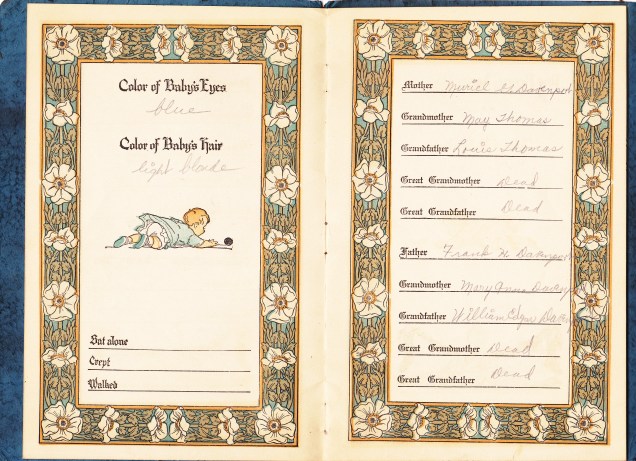 Color of Baby's Eyes
blue
Color of Baby's Hair
light blonde
Sat alone
Crept
Walked
Mother Muriel Davenport
Grandmother May Thomas
Grandfather Louie Thomas
Great Grandmother Dead
Great Grandfather Dead
Father Frank
Grandmother Mary Anna
Grandfather William Edgar
Great Grandmother Dead
Great Grandfather Dead